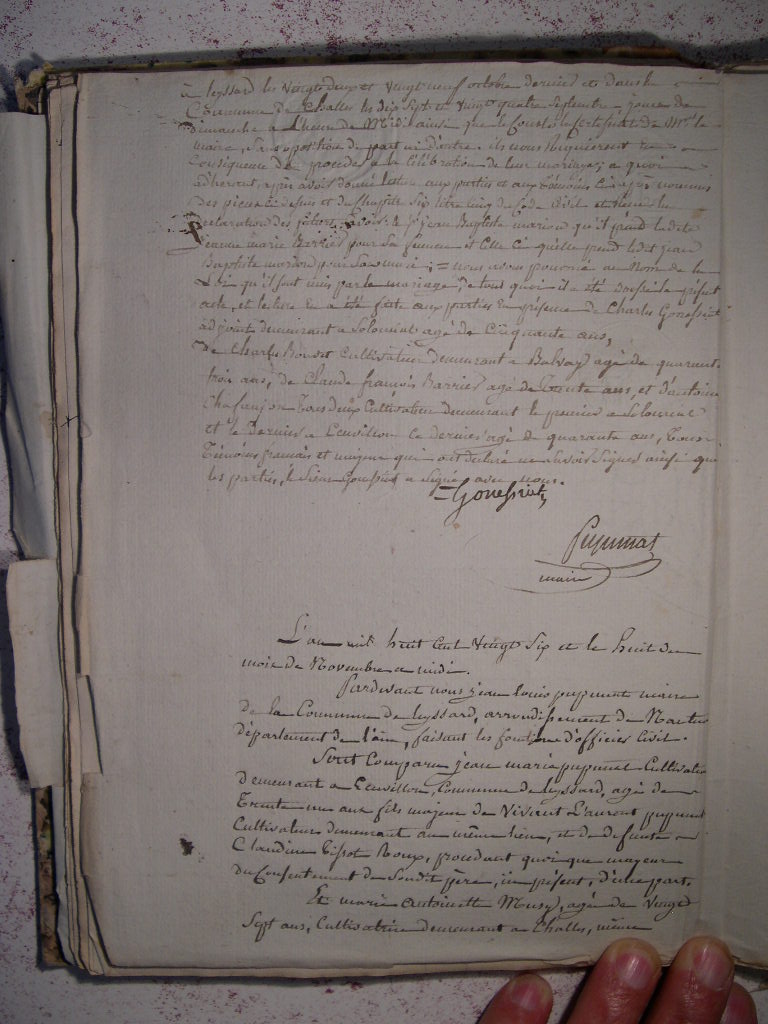 à leyssard les vingt deux et vingt neuf octobre dernier et dans la
Commune de Challes les dix sept et vingt quatre septembre jours de
dimanche à l'heure de Midi ainsi que le Constate le Certificat de Mr le
maire, sans opposition de part ni d'autre. ils nous requierent en
Consequence de proceder a la Célébration de leur mariage; a quoi
adherent, après avoir donné lecture aux parties et aux témoins
des pieces ci dessus et du Chapitre Six titre cinq du Code Civil et
declaration des futurs, savoir: le Sr jean Baptiste marion qu'il prend ladite
jeanne marie Barrier pour sa femme et Celle Ci quelle prend ledit jean
Baptiste marion pour son mari; = nous avons prononcé au Nom de la
Loi qu'il sont unis par le mariage; de tout quoi il a été dressé le présent
acte, et lecture en a été faite aux parties En présence de Charles Gonessiat
adjoint demeurant a Solomiat agé de Cinquante ans,
De Charles demeurant a Balvay agé de quarante
trois ans, de Claude francois Barrier agé de trente ans, et d'antoine
Chafanjon tous deux Cultivateur demeurant le premier a Solomiat
et le Dernier a Leuvillon Ce dernier agé de quarante ans, tous
témoins français et majeur qui ont déclaré ne savoir signer ainsi que
les parties, le Sieur Gonessiat a signé avec nous.
Gonessiat
Pupunat
maire
L'an mil huit Cent Vingt Six et le huit du
mois de Novembre a midi.
Pardevant nous jean louis pupunat maire
de la Commune de Leyssard, arrondissement de Nantua
département de l'ain, faisant les fonctions d'officier Civil.
Sont Comparu jean marie pupunat Cultivateur
demeurant a Leuvillon, Commune de Leyssard, agé de
Trente un ans fils majeur de Vivant Laurent pupunat
Cultivateur demeurant au même lieu, et de defunte
Claudine Tissot Roux, procedant quoique mayeur
du Consentement de Sondit père, ici présent, d'une part.
Et marie antoinette Musy, agée de Vingt
Sept ans, Cultivatrice demeurant a Challes, même